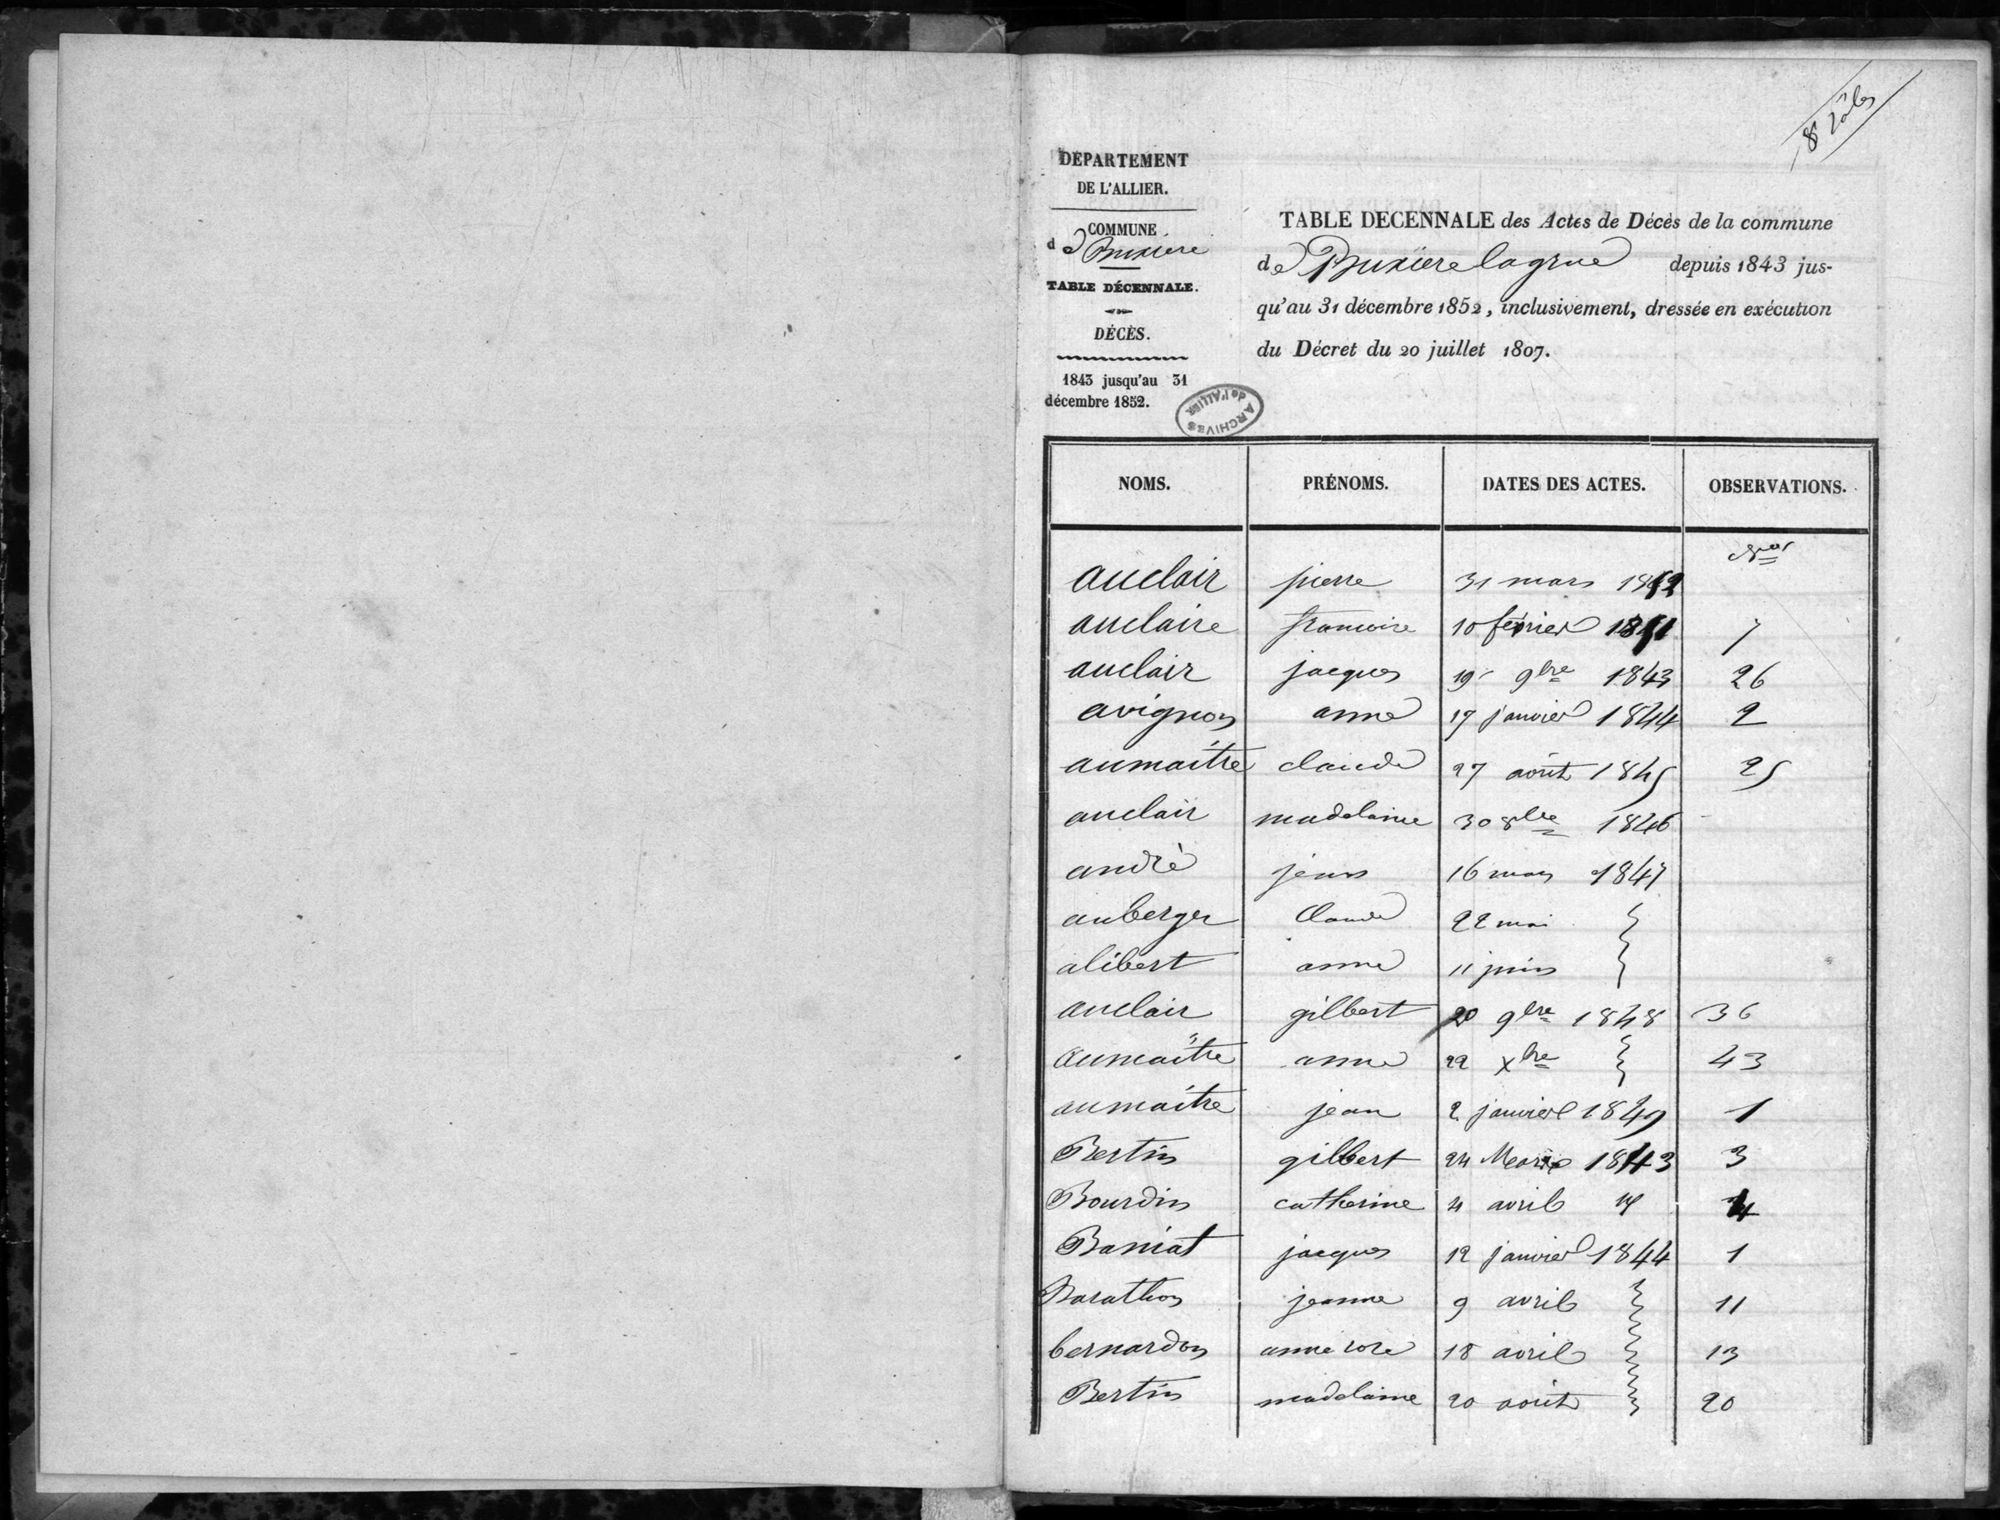 8 rôles
DEPARTEMENT
DE L'ALLIER.
COMMUNE
d e Buxiere
TABLE DÉCENNALE.
DÉCÈS.
1843 jusqu'au 31
décembre 1852.
ARCHIVES
de l'ALLIER
TABLE DECENNALE des Actes de Décès de la commune
de Buxiere lagrue depuis 1843 jus-
qu'au 31 décembre 1852, inclusivement, dressée en exécution
du Décret du 20 juillet 1807.
NOMS. PRÉNOMS. DATES DES ACTES. OBSERVATIONS.
Nos
auclair pierre 31 mars 1852
auclaire francoise 10 fevrier 1851 7
auclair jacques 19 9bre 1843 26
avignon anne 17 janvier 1844 2
aumaitre claude 27 août 1845 25
auclair madelaine 30 8bre 1846
andrè jean 16 mars 1847
auberger Claude 22 mai
alibert anne 11 juin
auclair gilbert 20 9bre 1848 36
aumaître anne 22 Xbre 43
aumaitre jean 2 janvier 1849 1
Bertin gilbert 24 Mars 1843 3
Bourdin catherine 4 avril 4
Baniat jacques 12 janvier 1844 1
Barathon jeanne 9 avril 11
bernardon anne rose 18 avril 13
Bertin madelaine 20 août 20